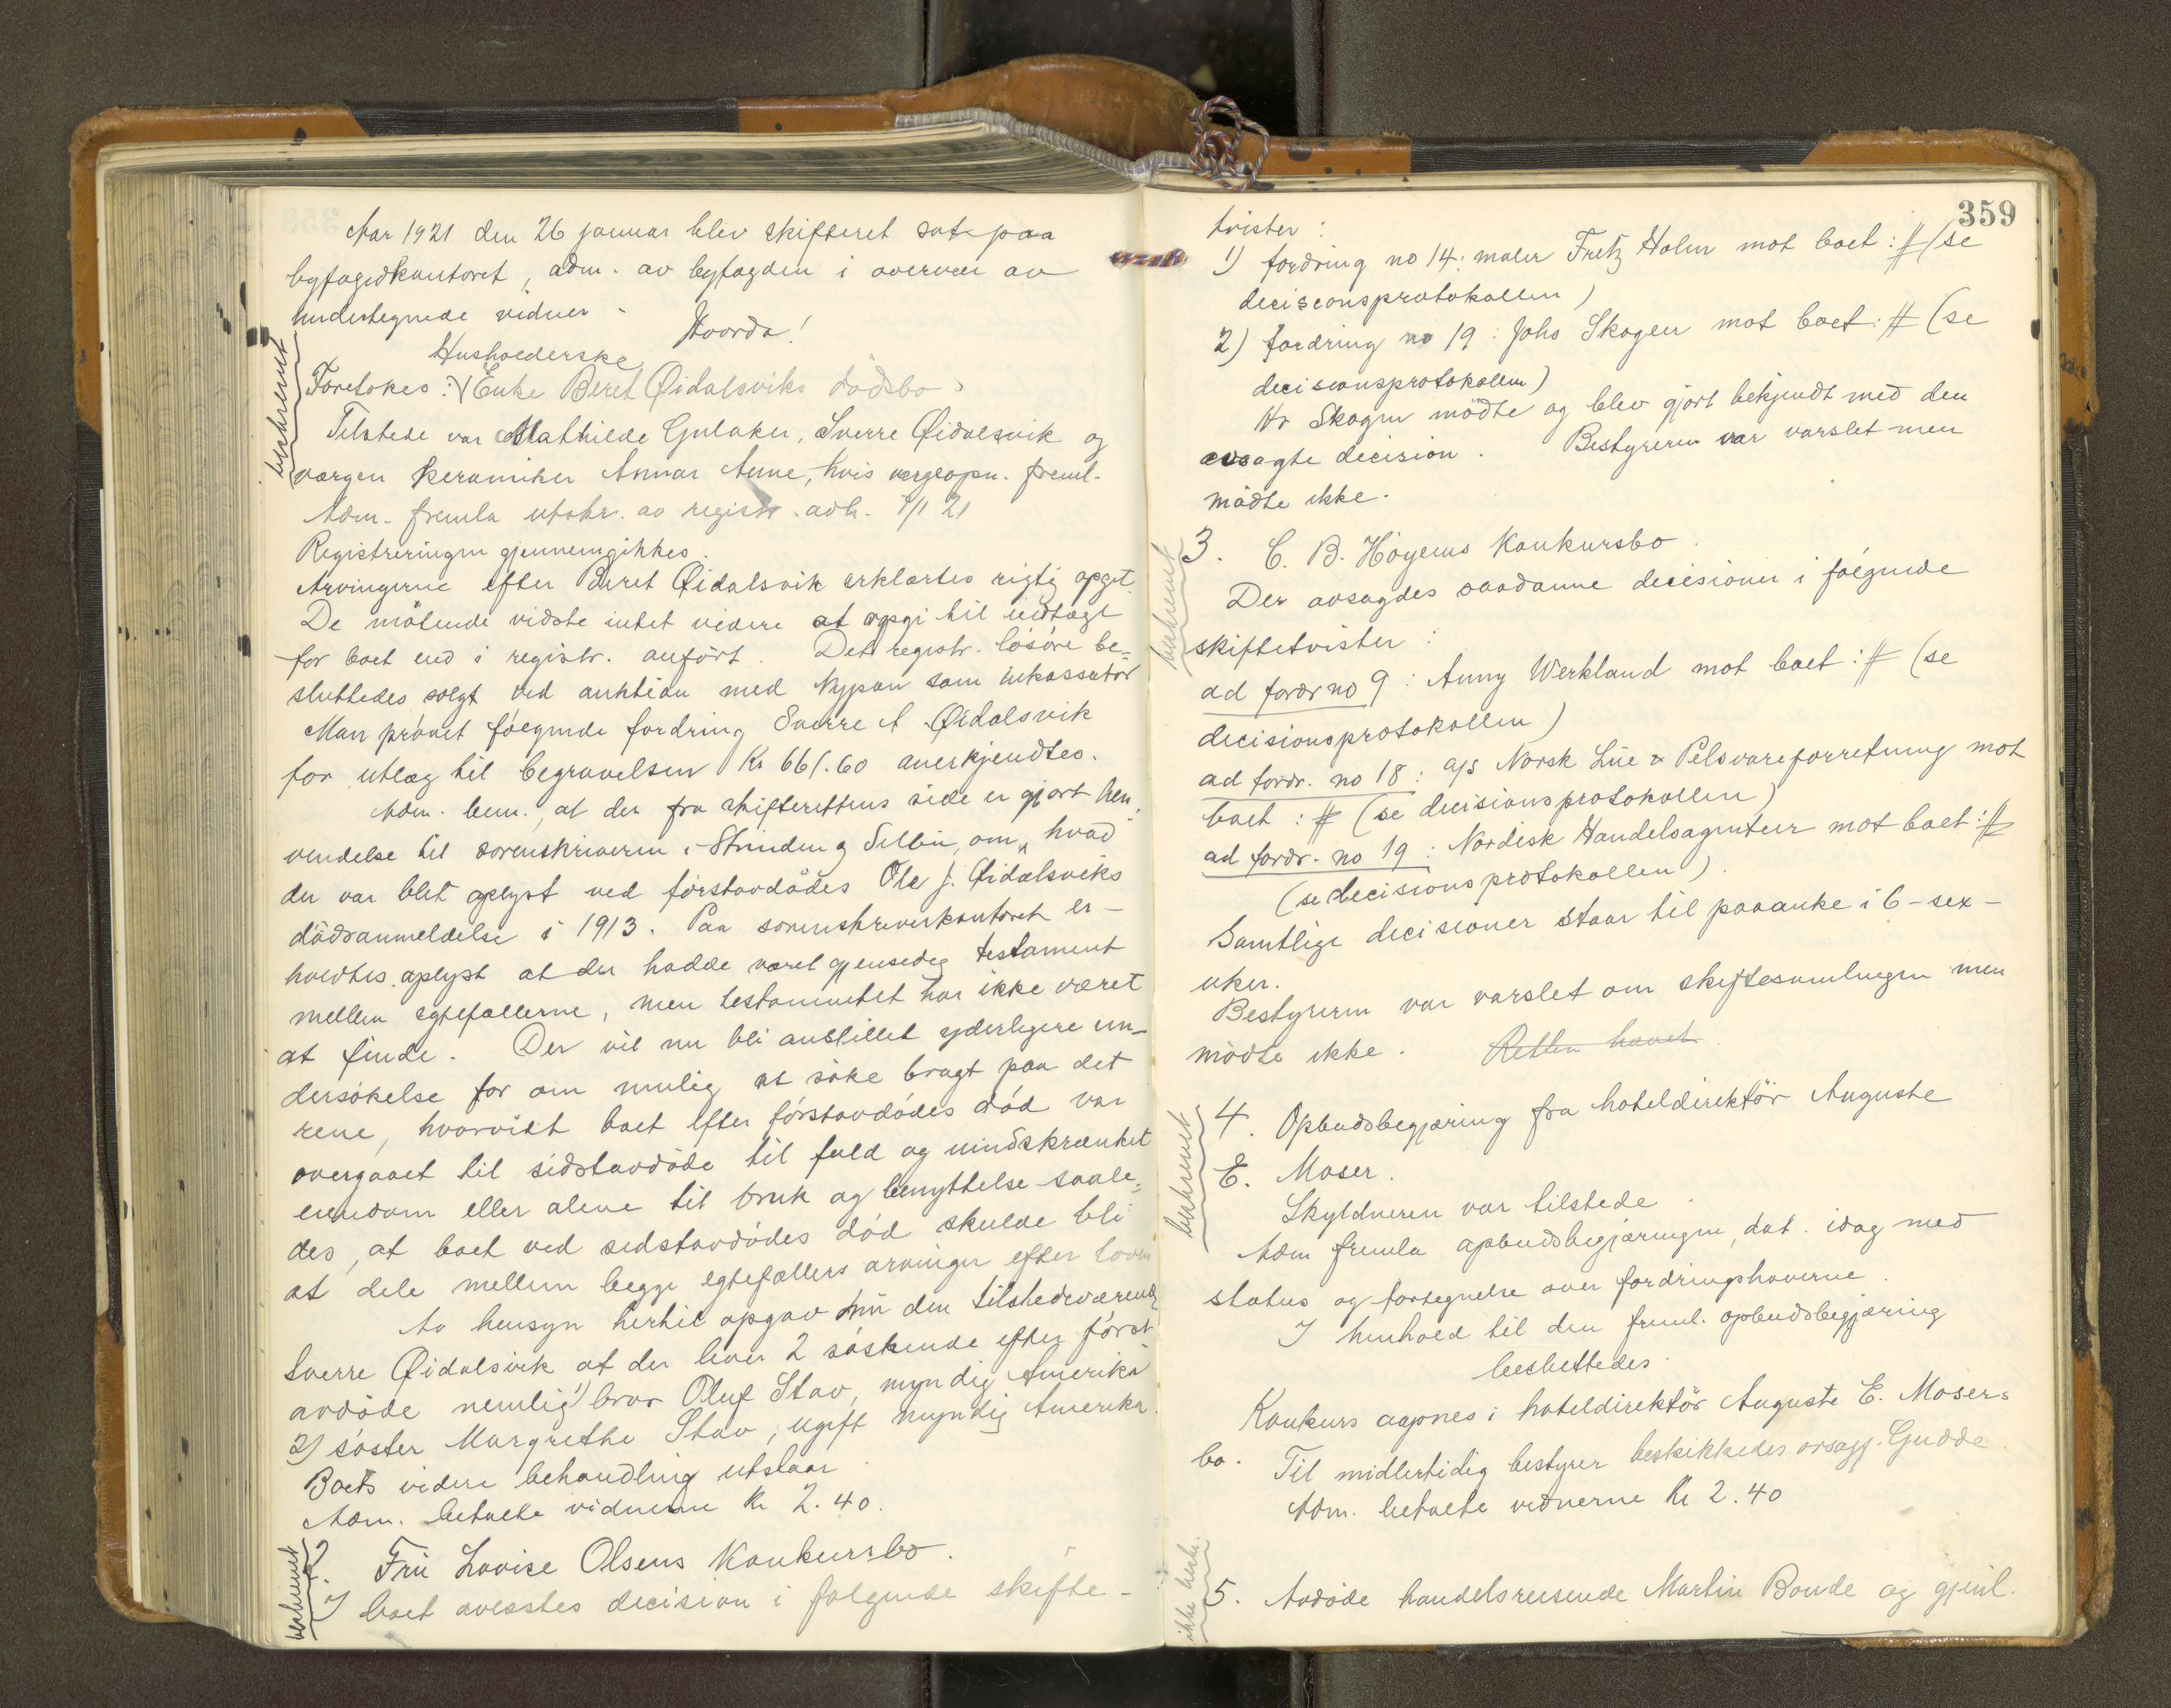 Aar 1921 den 26 januar blev skifteret sat paa
byfogedkontoret, adm. av byfogden i overvær av
undertegnede vidner.
Hvorda!
Husholderske
Foretokes: 1) Enke Beret Øidalsviks dødsbo.
Tilstede var Mathilde Gulaker, Sverre Øidalsvik og
vergen keramiker Annar Aune, hvis vergeopn. freml.
Adm. fremla utskr. av registr. avh. 7/1 21
Registreringen gjennemgikkes.
Arvingerne efter Beret Øidalsvik erklærtes rigtig opgit.
De møtende vidste intet videre at opgi til indtægt
for boet end i registr. anført. Det registr. løsøre be=
sluttedes solgt ved auktion med Nypan som inkassator
Man prøvet følgende fordring Sverre A. Øidalsvik
for utlæg til begravelsen Kr 661.60 anerkjendtes.
Adm. bem., at der fra skifterettens side er gjort hen,
vendelse til sorenskriveren i Strinden og Selbu, om, hvad
der var blit oplyst ved førstavdødes Ole J. Øidalsviks
dødsanmeldelse i 1913. Paa sorenskriverkontoret er-
holdtes oplyst at der hadde været gjensidig testament
mellem egtefællerne, men testamentet har ikke været
at finde. Der vil nu bli anstillet yderligere un-
dersøkelse for om mulig at søke bragt paa det
rene, hvorvidt boet efter førstavdødes død var
overgaaet til sidstavdøde til fuld og uindskrænket
eiendom eller alene til bruk og benyttelse saale=
des, at boet ved sidstavdødes død skulde bli
at dele mellem begge egtefællers arvinger efter loven
Av hensyn hertil opgav nu den tilstedeværende
Sverre Øidalsvik at der lever 2 søskende efter først
avdøde nemlig 1) bror Oluf Stav, myndig Amerika
2) søster Margrethe Stav, ugift myndig Amerika.
Boets videre behandling utstaar.
Adm. betalte vidnerne Kr 2.40.
2. Fru Lovise Olsens Konkursbo.
I boet avsastes decision i følgende skifte-
beskrevet
beskrevet
359
tvister:
1) fordring no 14: maler Fritz Holm mot boet: # (se
decisionsprotokollen)
2) fordring no 19: Johs Skogen mot boet: # (se
decisionsprotokollen)
Hr Skogen mødte og blev gjort bekjendt med den
avsagte decision. Bestyreren var varslet men
mødte ikke.
3. C. B. Høyems Konkursbo.
Der avsagdes saadanne decisioner i følgende
skiftetvister:
ad fordr no 9: Anny Werkland mot boet: # (se
decisionsprotokollen)
ad fordr. no 18: a/s Norsk Lue & Pelsvareforretning mot
boet: # (se decisionsprotokollen)
ad fordr. no 19: Nordisk Handelsagentur mot boet: #
(se decisionsprotokollen).
Samtlige decisioner staar til paaanke i 6 - sex -
uker.
Bestyreren var varslet om skiftesamlingen men
mødte ikke. Retten hævet.
4. Opbudsbegjæring fra hoteldirektør Auguste
E. Moser.
Skyldneren var tilstede.
Adm fremla opbudsbegjæringen, dat. idag med
status og fortegnelse over fordringshaverne.
I henhold til den freml. opbudsbegjæring
besluttedes:
Konkurs aapnes i hoteldirektør Auguste E. Mosers
bo. Til midlertidig bestyrer beskikkedes orsagf. Gudde
Adm. betalte vidnerne Kr 2.40
5. Avdøde handelsreisende Martin Bonde og gjenl.
beskrevet
beskrevet
ikke beskr.